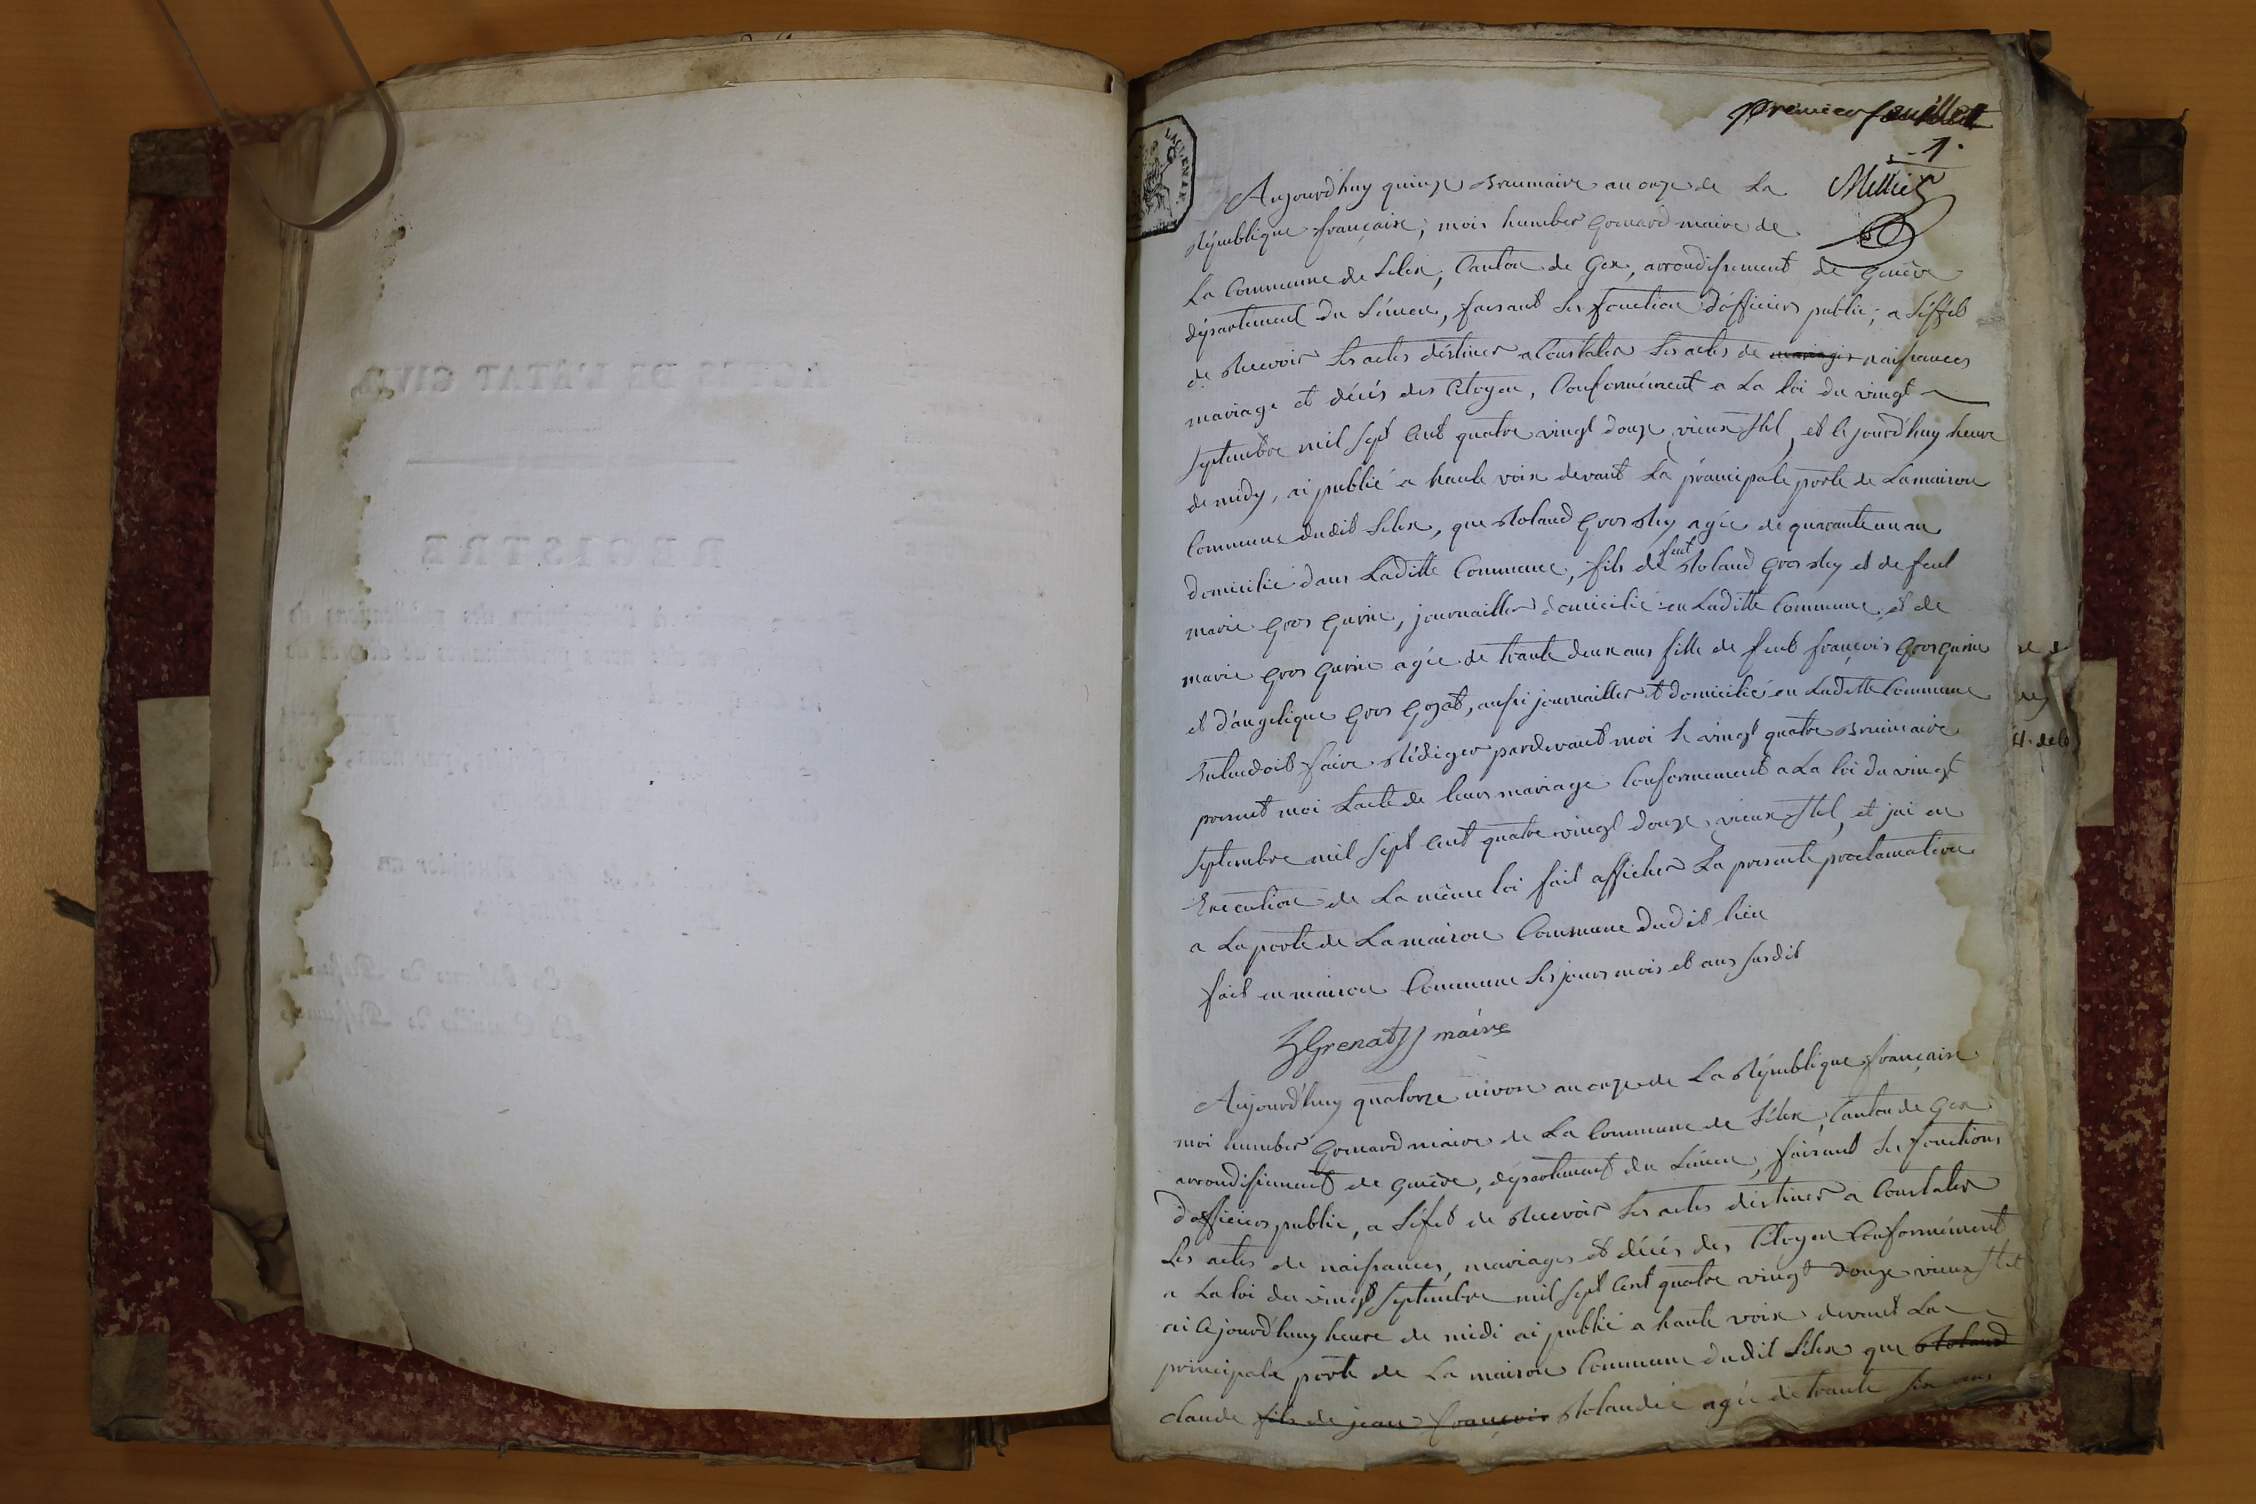 premier feuillet
1.
Milliet
Aujourd'huy quinze Brumaire an onze de La
République française; mois humber gonard maire de
La Commune de Lelex, Canton de Gex, arrondissement de genève
département du Léman, faisant les fonction d'officiers public; a L'éffet
de Recevoir Les actes déstiner a Constater Les actes de mariages naissances
mariage et décés des Citoyen, Conformément a La loi du vingt
septembre mil sept Cent quatre vingt douze vieux stil, et le jourd'huy heure
de midy, ai publié a haute voix devant La principale porte de La maison
Commune dudit Lelex, que Roland Gros Rey agée de quarante un an
domicilié dans Laditte Commune, fils de feut Roland Gros Rey et de feut
marie Gros gurin, journaillier domicilié en Laditte Commune, et de
marie Gros gurin agée de trante deux ans fille de feut françois Grosgurin
et d'angelique Gros gozat, aussi journaillier et domicilié en Laditte Commune
Entendoit faire Rédiger pardevant moi le vingt quatre Brumaire
present moi L'acte de leurs mariage Conformement a La loi du vingt
septembre mil sept Cent quatre vingt douze, vieux stil, et jai en
Execution de La même loi fait afficher La presente proclamation
a La porte de La maison Commune dudit lieu
fait en maison Commune Les jours mois et ans susdit
HGrenat maire
Aujourd'huy quatorze nivose an onze de La République française
moi humber Gonard maire de La Commune de Lélex, Canton de Gex
arrondissement de genève, département du Léman, faisant Les fonctions
d'officiers public, a L'éfet de Recevoir Les actes déstiner a Constater
Les actes de naissances, mariages et décés des Citoyen Conformément
a La loi du vingt septembre mil sept Cent quatre vingt douze vieux stil
ai Cejourd'huy heure de midi ai publié a haute voix devant La
principale porte de La maison Commune dudit Lélex que Roland
claude fils de jean françois Rolandée agée de trante six ans